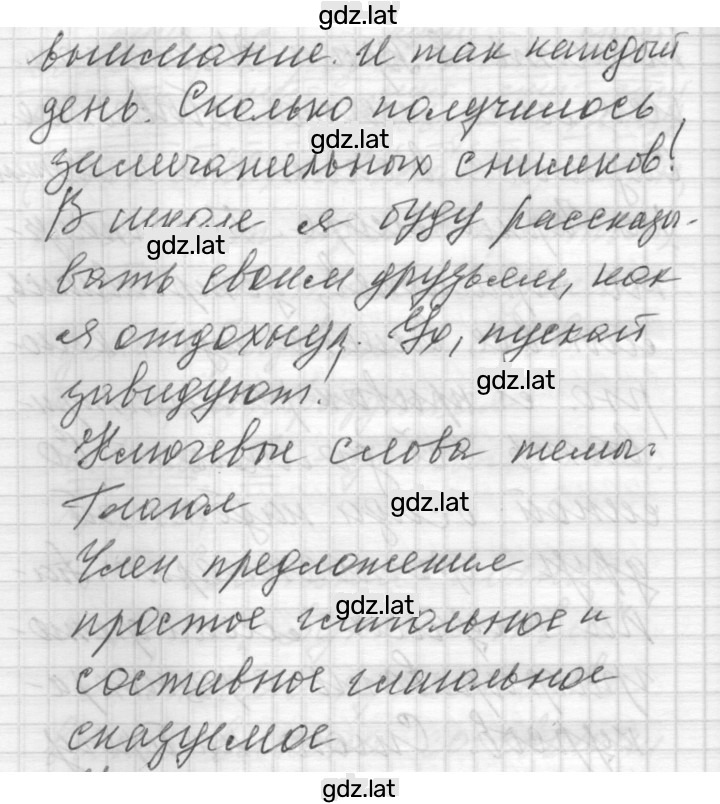 gdz.lat
внимание. И так каждый
день. Сколько получилось
gdz.lat
замечательных снимков!
В школе я буду рассказы-
gdz.lat
вать своим друзьям, как
я отдохнул. Ух, пускай
gdz.lat
завидуют!
Ключевые слова темы:
Глагол
gdz.lat
Член предложения
gdz.lat
простое глагольное и
составное глагольное
сказуемое
gdz.lat